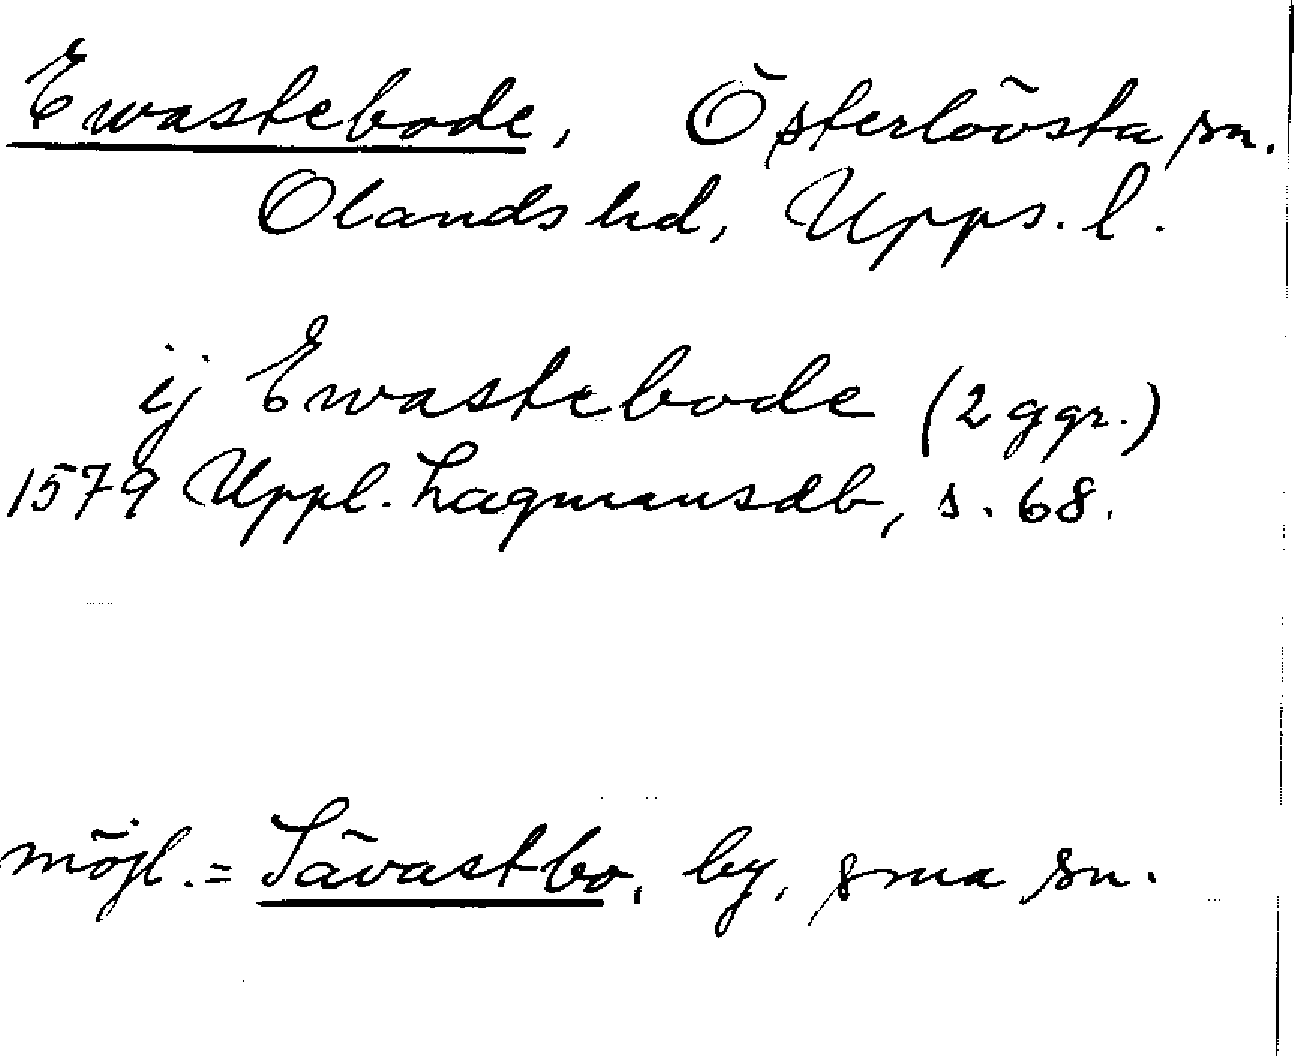 Ewastebode, Österlövsta sn.
Olands hd, Upps. l.
ij Ewastebode (2 ggr.)
1579 Uppl. Lagmansdb, s. 68.
möjl. = Sävastbo, by, sma sn.